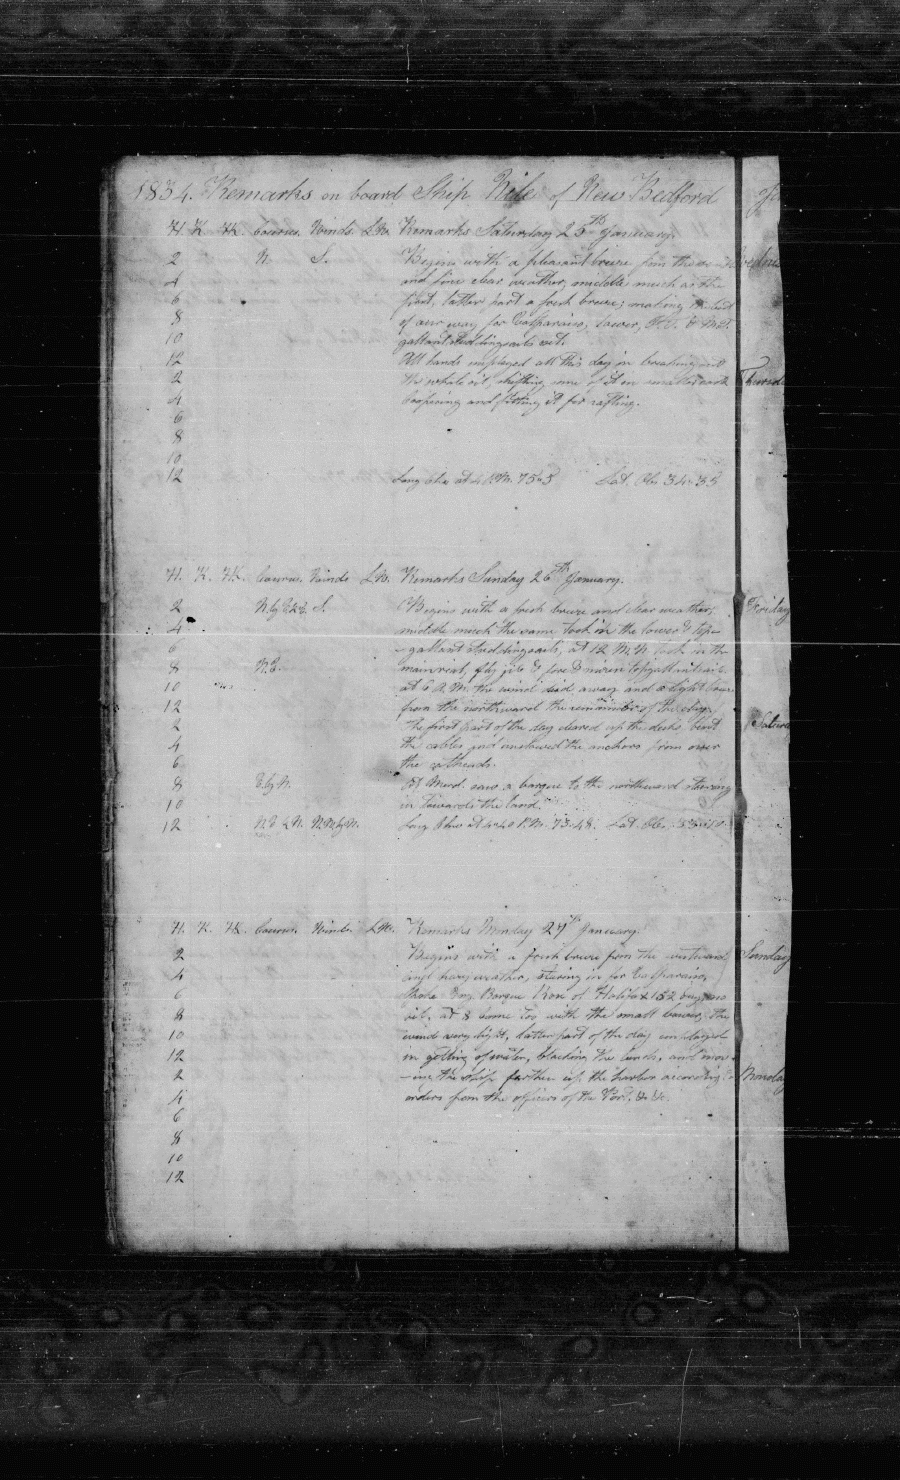 1834. Remarks on board Ship Nile of New Bedford
H. K. HK. Courses. Winds. LW. Remarks Saturday 25th January.
2 N. S. Begins with a pleasant breeze from the
4 and fine clear weather, middle much as the
6 first, latter part a fresh breeze; making the best
8 of our way for Valparaiso, lower, &
10 gallant studdingsails set.
12 All hands employed all this day in breaking out
2 the whale oil, shifting some of it
4 coopering and fitting it for rafting.
6
8
10
12 Long Chro at 4 P.M. 75-5 Lat. Obs 34-35
H. K. HK. Courses. Winds LW. Remarks Sunday 26th January.
2 N.by E. S. Begins with a fresh breeze and clear weather,
4 middle much the same took in the lower & top-
6 -gallant studdingsails, at 12 M.N. took in the
8 N.E. mainsail, fly jib & fore & mizen topgallantsails
10 at 6 A.M. the wind died away and a light breeze
12 from the northward the remainder of the day.
2 The first part of the day cleared up the decks bent
4 the cables and unstowed the anchors from over
6 the catheads.
8 E.by N. At Merd. saw a barque to the northward steering
10 in towards the land.
12 N.E. by N. N.W.by N. Long Chro at 4-40 P.M. 73-48. Lat. Obs.
H. K. HK. Courses. Winds. LW. Remarks Monday 27th January.
2 Begins with a fresh breeze from the westward
4 and hazy weather, steering in for Valparaiso,
6 spoke Eng. Barque Rose of Halifax 182 days, no
8 oil, at 8 come too with the small bower, the
10 wind very light, latter part of the day employed
12 in getting of water, blacking the bends, and mov-
2 -ing the ship farther up the harbor according to
4 orders from the officers of the Port. &c &c.
6
8
10
12
Friday
Sunday
Monday